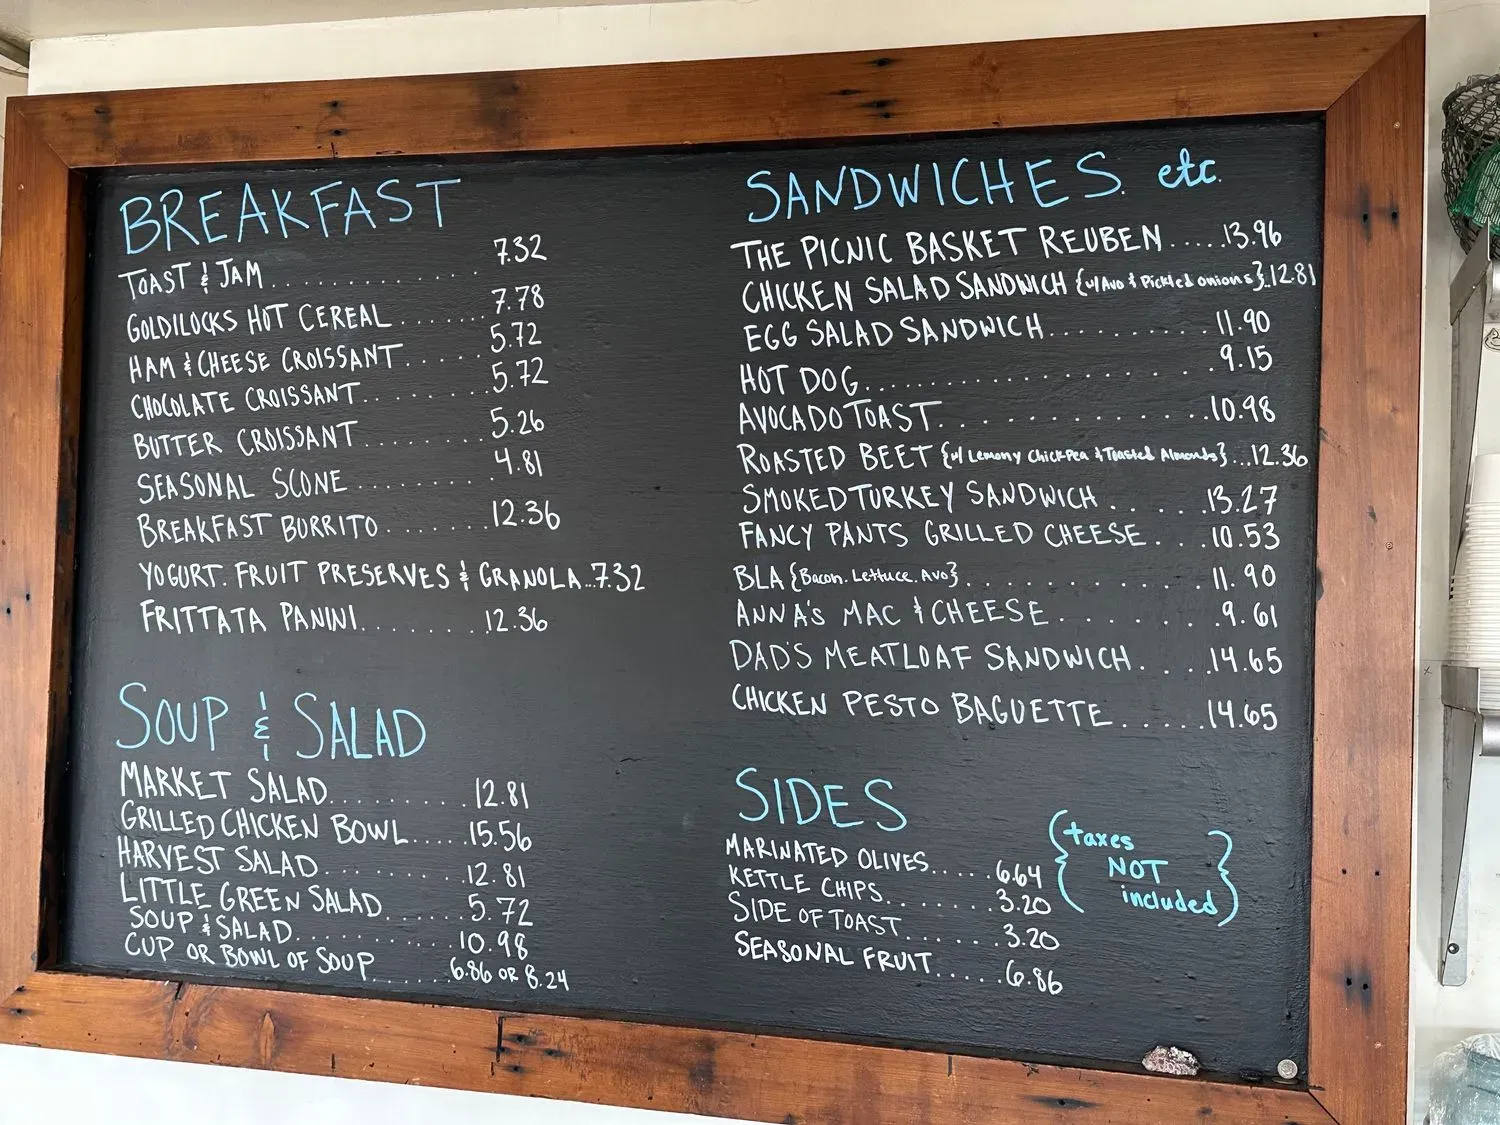 BREAKFAST
TOAST & JAM............ 7.32
GOLDILOCKS HOT CEREAL....... 7.78
HAM & CHEESE CROISSANT...... 5.72
CHOCOLATE CROISSANT......... 5.72
BUTTER CROISSANT......... 5.26
SEASONAL SCONE.......... 4.81
BREAKFAST BURRITO....... 12.36
YOGURT. FRUIT PRESERVES & GRANOLA...7.32
FRITTATA PANINI........ 12.36
SOUP & SALAD
MARKET SALAD......... 12.81
GRILLED CHICKEN BOWL..... 15.56
HARVEST SALAD.......... 12.81
LITTLE GREEN SALAD...... 5.72
SOUP & SALAD........... 10.98
CUP OR BOWL OF SOUP...... 6.86 OR 8.24
SANDWICHES etc.
THE PICNIC BASKET REUBEN.....13.96
CHICKEN SALAD SANDWICH {w/ Avo & Pickled onions}..12.81
EGG SALAD SANDWICH.......... 11.90
HOT DOG.................... 9.15
AVOCADO TOAST.............. 10.98
ROASTED BEET {w/ Lemony Chickpea & Toasted Almonds}...12.36
SMOKED TURKEY SANDWICH..... 13.27
FANCY PANTS GRILLED CHEESE... 10.53
BLA {Bacon. Lettuce. Avo}........... 11.90
ANNA'S MAC & CHEESE......... 9.61
DAD'S MEATLOAF SANDWICH.... 14.65
CHICKEN PESTO BAGUETTE......14.65
SIDES
MARINATED OLIVES..... 6.64
KETTLE CHIPS........ 3.20
SIDE OF TOAST....... 3.20
SEASONAL FRUIT...... 6.86
{taxes
NOT
included}